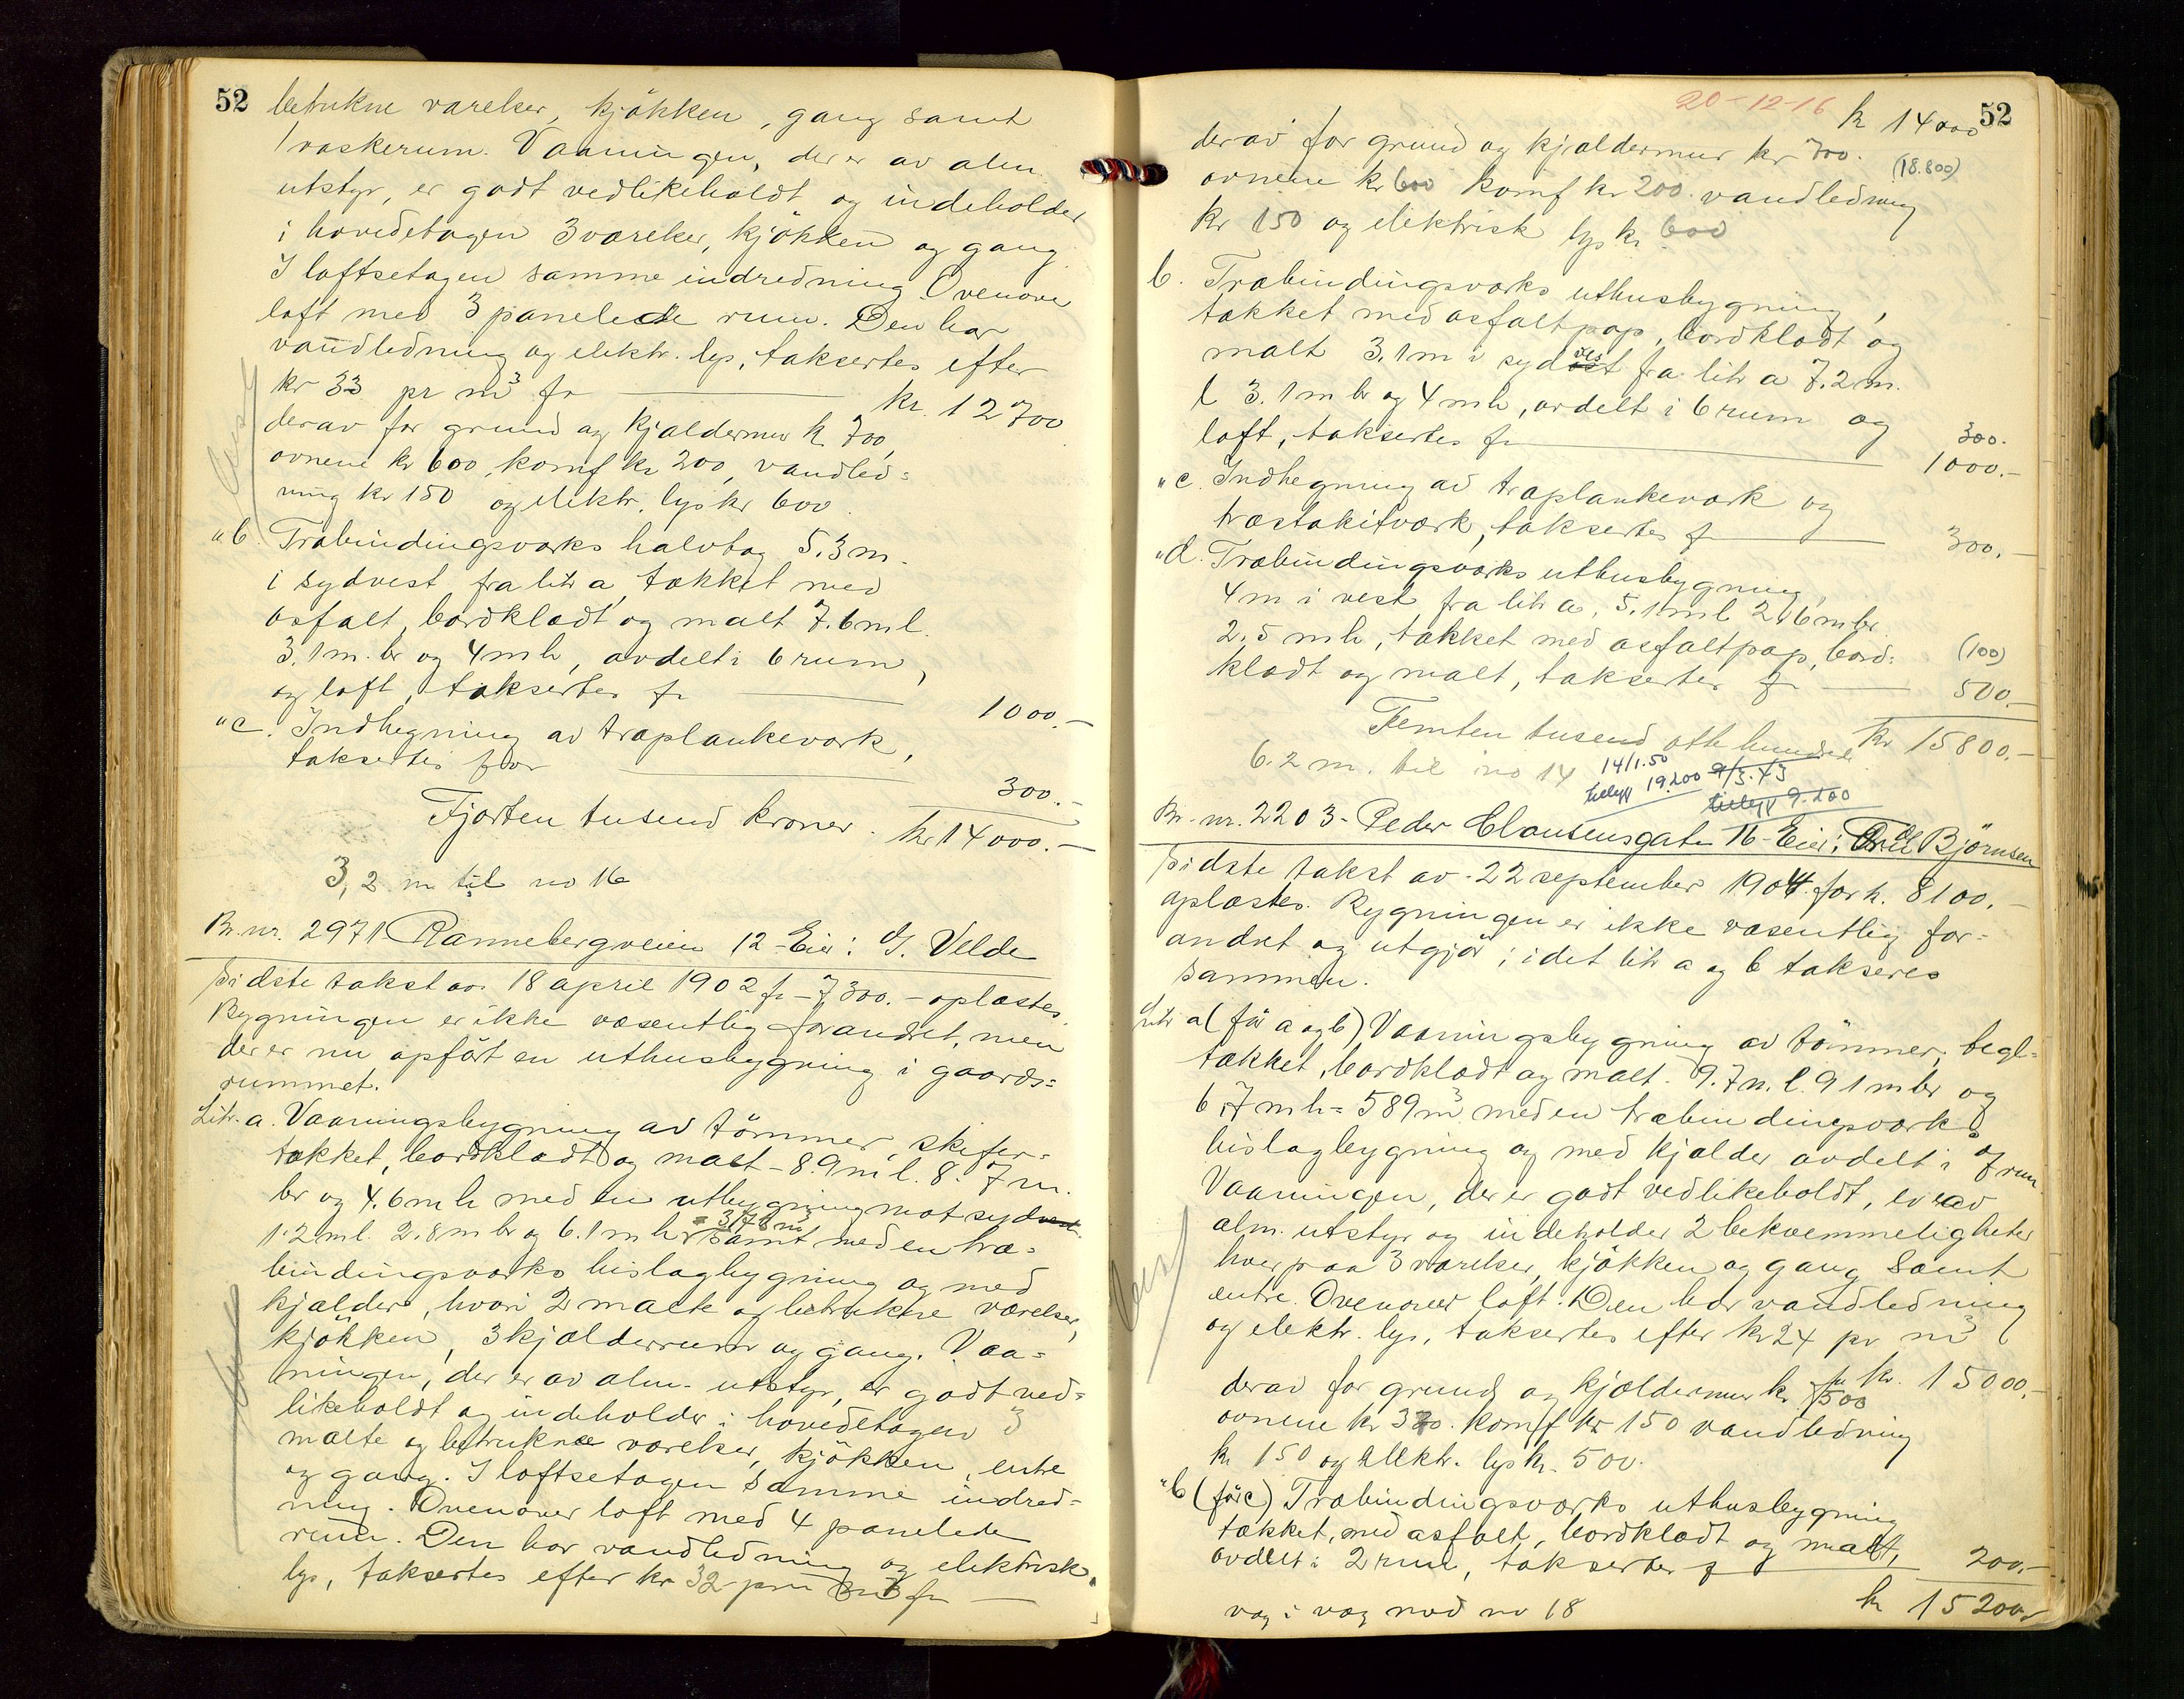 52
betrukne værelser, kjökken, gang samt
1 vaskerum. Vaaningen, der er av alm.
utstyr, er godt vedlikeholdt og indeholder
i hovedetagen 3 værelser, kjökken og gang.
I loftsetagen samme indredning. Ovenover
loft med 3 panelede rum. Den har
vandledning og elektr. lys, taksertes efter
kr 33 pr m3 for kr. 12700
derav for grund og kjældermur kr 700,
ovnene kr 600, komf kr 200, vandled=
ning kr 150 og elektr. lys kr 600.
"b. Træbindingsværks halvtag 5.3 m.
i sydvest fra litr a, tækket med
asfalt, bordklædt og malt 7.6 m l.
3.1 m. br og 4 m h, avdelt i 6 rum,
og loft, taksertes for 1000.-
"c. Indhegning av træplankeværk,
taksertes for 300.-
Fjorten tusend kroner. kr 14000.-
3,2 m til no 16
Br. nr. 2971 Rannebergveien 12 - Eier: G. Velde
Sidste takst av 18 april 1902 for 7300.- oplæstes.
Bygningen er ikke væsentlig forandret, men
der er nu opfört en uthusbygning i gaards=
rummet.
Litr. a. Vaaningsbygning av tömmer skifer=
tækket, bordklædt og malt - 8.9 m l. 8.7 m.
br og 4.6 m h med en utbygning mot syd
1.2 m l. 2.8 m br og 6.1 m h samt med en træ=
bindingsværks bislagbygning og med
kjælder, hvori 2 malte og betrukne værelser,
kjökken, 3 kjælderrum og gang. Vaa=
ningen, der er av alm. utstyr, er godt ved=
likeholdt og indeholder i hovedetagen 3
malte og betrukne værelser, kjökken, entre
og gang. I loftsetagen samme indred=
ning. Ovenover loft med 4 panelede
rum. Den har vandledning og elektrisk
lys, taksertes efter kr 32 pr m3 for
20-12-16
kr 14000
52
derav for grund og kjældermur kr 700.
(18.800)
ovnene kr 600 komf kr 200. vandledning
kr 150 og elektrisk lys kr 600
b. Træbindingsværks uthusbygning,
tækket med asfaltpap, bordklædt og
malt 3.1 m i sydvest fra litr a 7.2 m.
l 3.1 m br og 4 m h, avdelt i 6 rum og
loft, taksertes for 300.-
1000.-
"c. Indhegning av træplankeværk og
træstakitværk, taksertes for 300.-
"d. Træbindingsværks uthusbygning,
4 m i vest fra litr a, 5.1 m l 2.6 m br
2.5 m h, tækket med asfaltpap, bord=
(100)
klædt og malt, taksertes for 500.-
Femten tusend otte hundrede kr 15800.-
6.2 m. til no 14
14/1.50
tillegg 19200
9/3.43
tillegg 9.200
Br. nr. 2203 - Peder Clausensgate 16 - Eier: Björnsen
Sidste takst av 22 september 1904 for kr. 8100.-
oplæstes. Bygningen er ikke væsentlig for=
andret og utgjör; idet litr a og b takseres
sammen.
Litr a (för a og b) Vaaningsbygning av tömmer, tegl=
tækket, bordklædt og malt. 9.7 m. l. 9.1 m br og
6.7 m h = 589 m3 med en træbindingsværks
bislagbygning og med kjælder avdelt i 7 rum.
Vaaningen, der er godt vedlikeholdt, er av
alm. utstyr og indeholder 2 bekvemmeligheter
hver paa 3 værelser, kjökken og gang samt
entre. Ovenover loft. Den har vandledning
og elektr. lys, taksertes efter kr 24 pr m3
for kr. 15000.-
derav for grund og kjældermur kr 500
ovnene kr 320. komf kr 150 vandledning
kr 150 og elektr. lys kr. 500.
"b (för c) Træbindingsværks uthusbygning
tækket med asfalt, bordklædt og malt,
avdelt i 2 rum, taksertes for 200.-
kr 15200.-
væg i væg med no 18